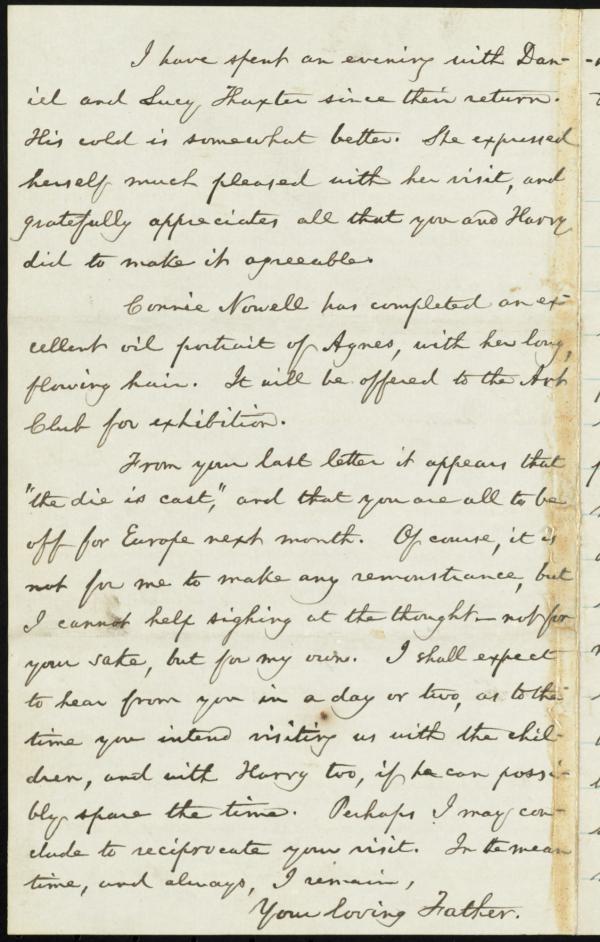 I have spent an evening with Dan-
iel and Lucy Thaxter since their return.
His cold is somewhat better. She expressed
herself much pleased with her visit, and
gratefully appreciates all that you and Harry
did to make it agreeable.
Connie Nowell has completed an ex-
cellent oil portrait of Agnes, with her long,
flowing hair. It will be offered to the Art
Club for exhibition.
From your last letter it appears that
"the die is cast," and that you are all to be
off for Europe next month. Of course, it is
not for me to make any remonstrance, but
I cannot help sighing at the thought — not for
your sake, but for my own. I shall expect
to hear from you in a day or two, as to the
time you intend visiting us with the chil-
dren, and with Harry too, if he can possi-
bly spare the time. Perhaps I may con-
clude to reciprocate your visit. In the mean
time, and always, I remain,
Your loving Father.